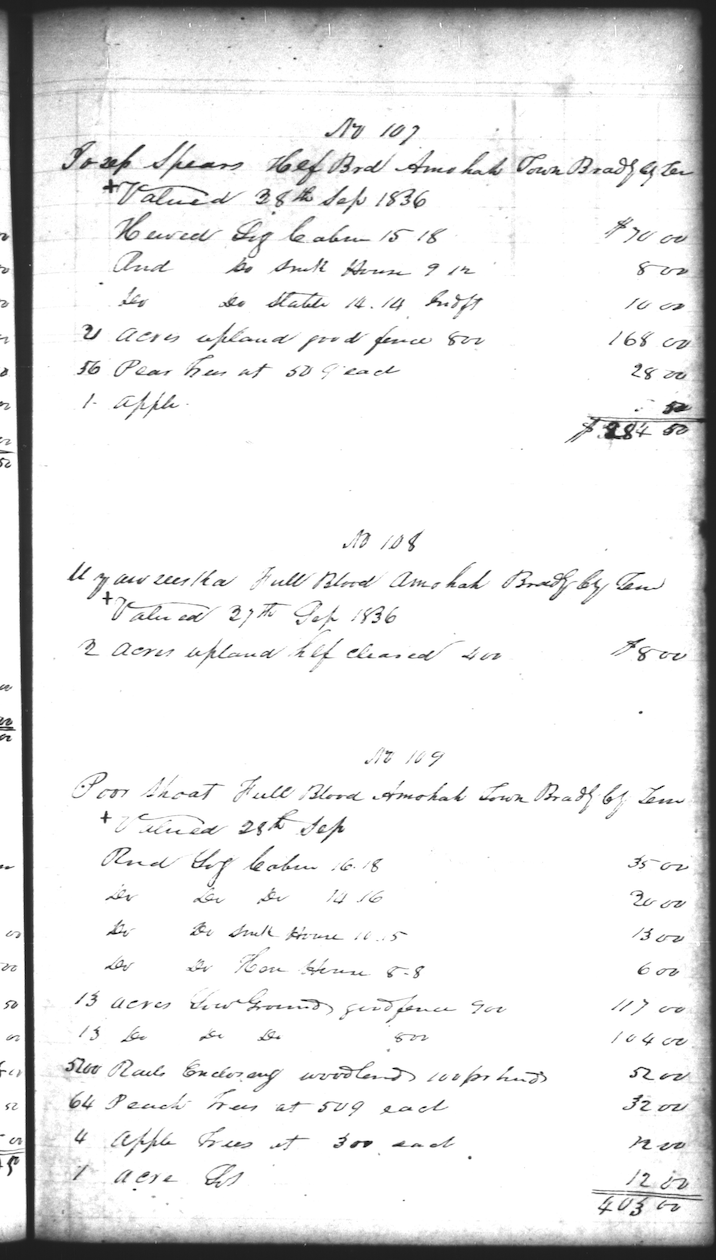 No 107
Josep Spears Hlf Brd Amohah Town Bradly Cty Ten
+ Valued 28th Sep 1836
Hewed Log Cabin 15 18 $70 00
Rnd Do Smk House 9 12 8 00
Do Do Stable 14.14 10 00
21 Acres upland good fence 800 168 00
56 Pear Trees at 50 c each 28 00
1 Apple 50
$284 50
No 108
Full Blood Amohah Bradly Cty Tenn
+ Valued 27th Sep 1836
2 Acres upland hlf cleared 400 $8 00
No 109
Poor Shoat Full Blood Amohah Town Bradly Cty Tenn
+ Valued 28th Sep
Rnd Log Cabin 16.18 35 00
Do Do Do 14 16 20 00
Do Do Smk House 10.15 13 00
Do Do Hen House 8-8 6 00
13 acres Low Ground good fence 900 117 00
13 Do Do Do 800 104 00
5200 Rails Enclosing woodland 100 pr hund 52 00
64 Peach Trees at 50 c each 32 00
4 Apple Trees at 300 each 12 00
1 acre Lot 12 00
403 00